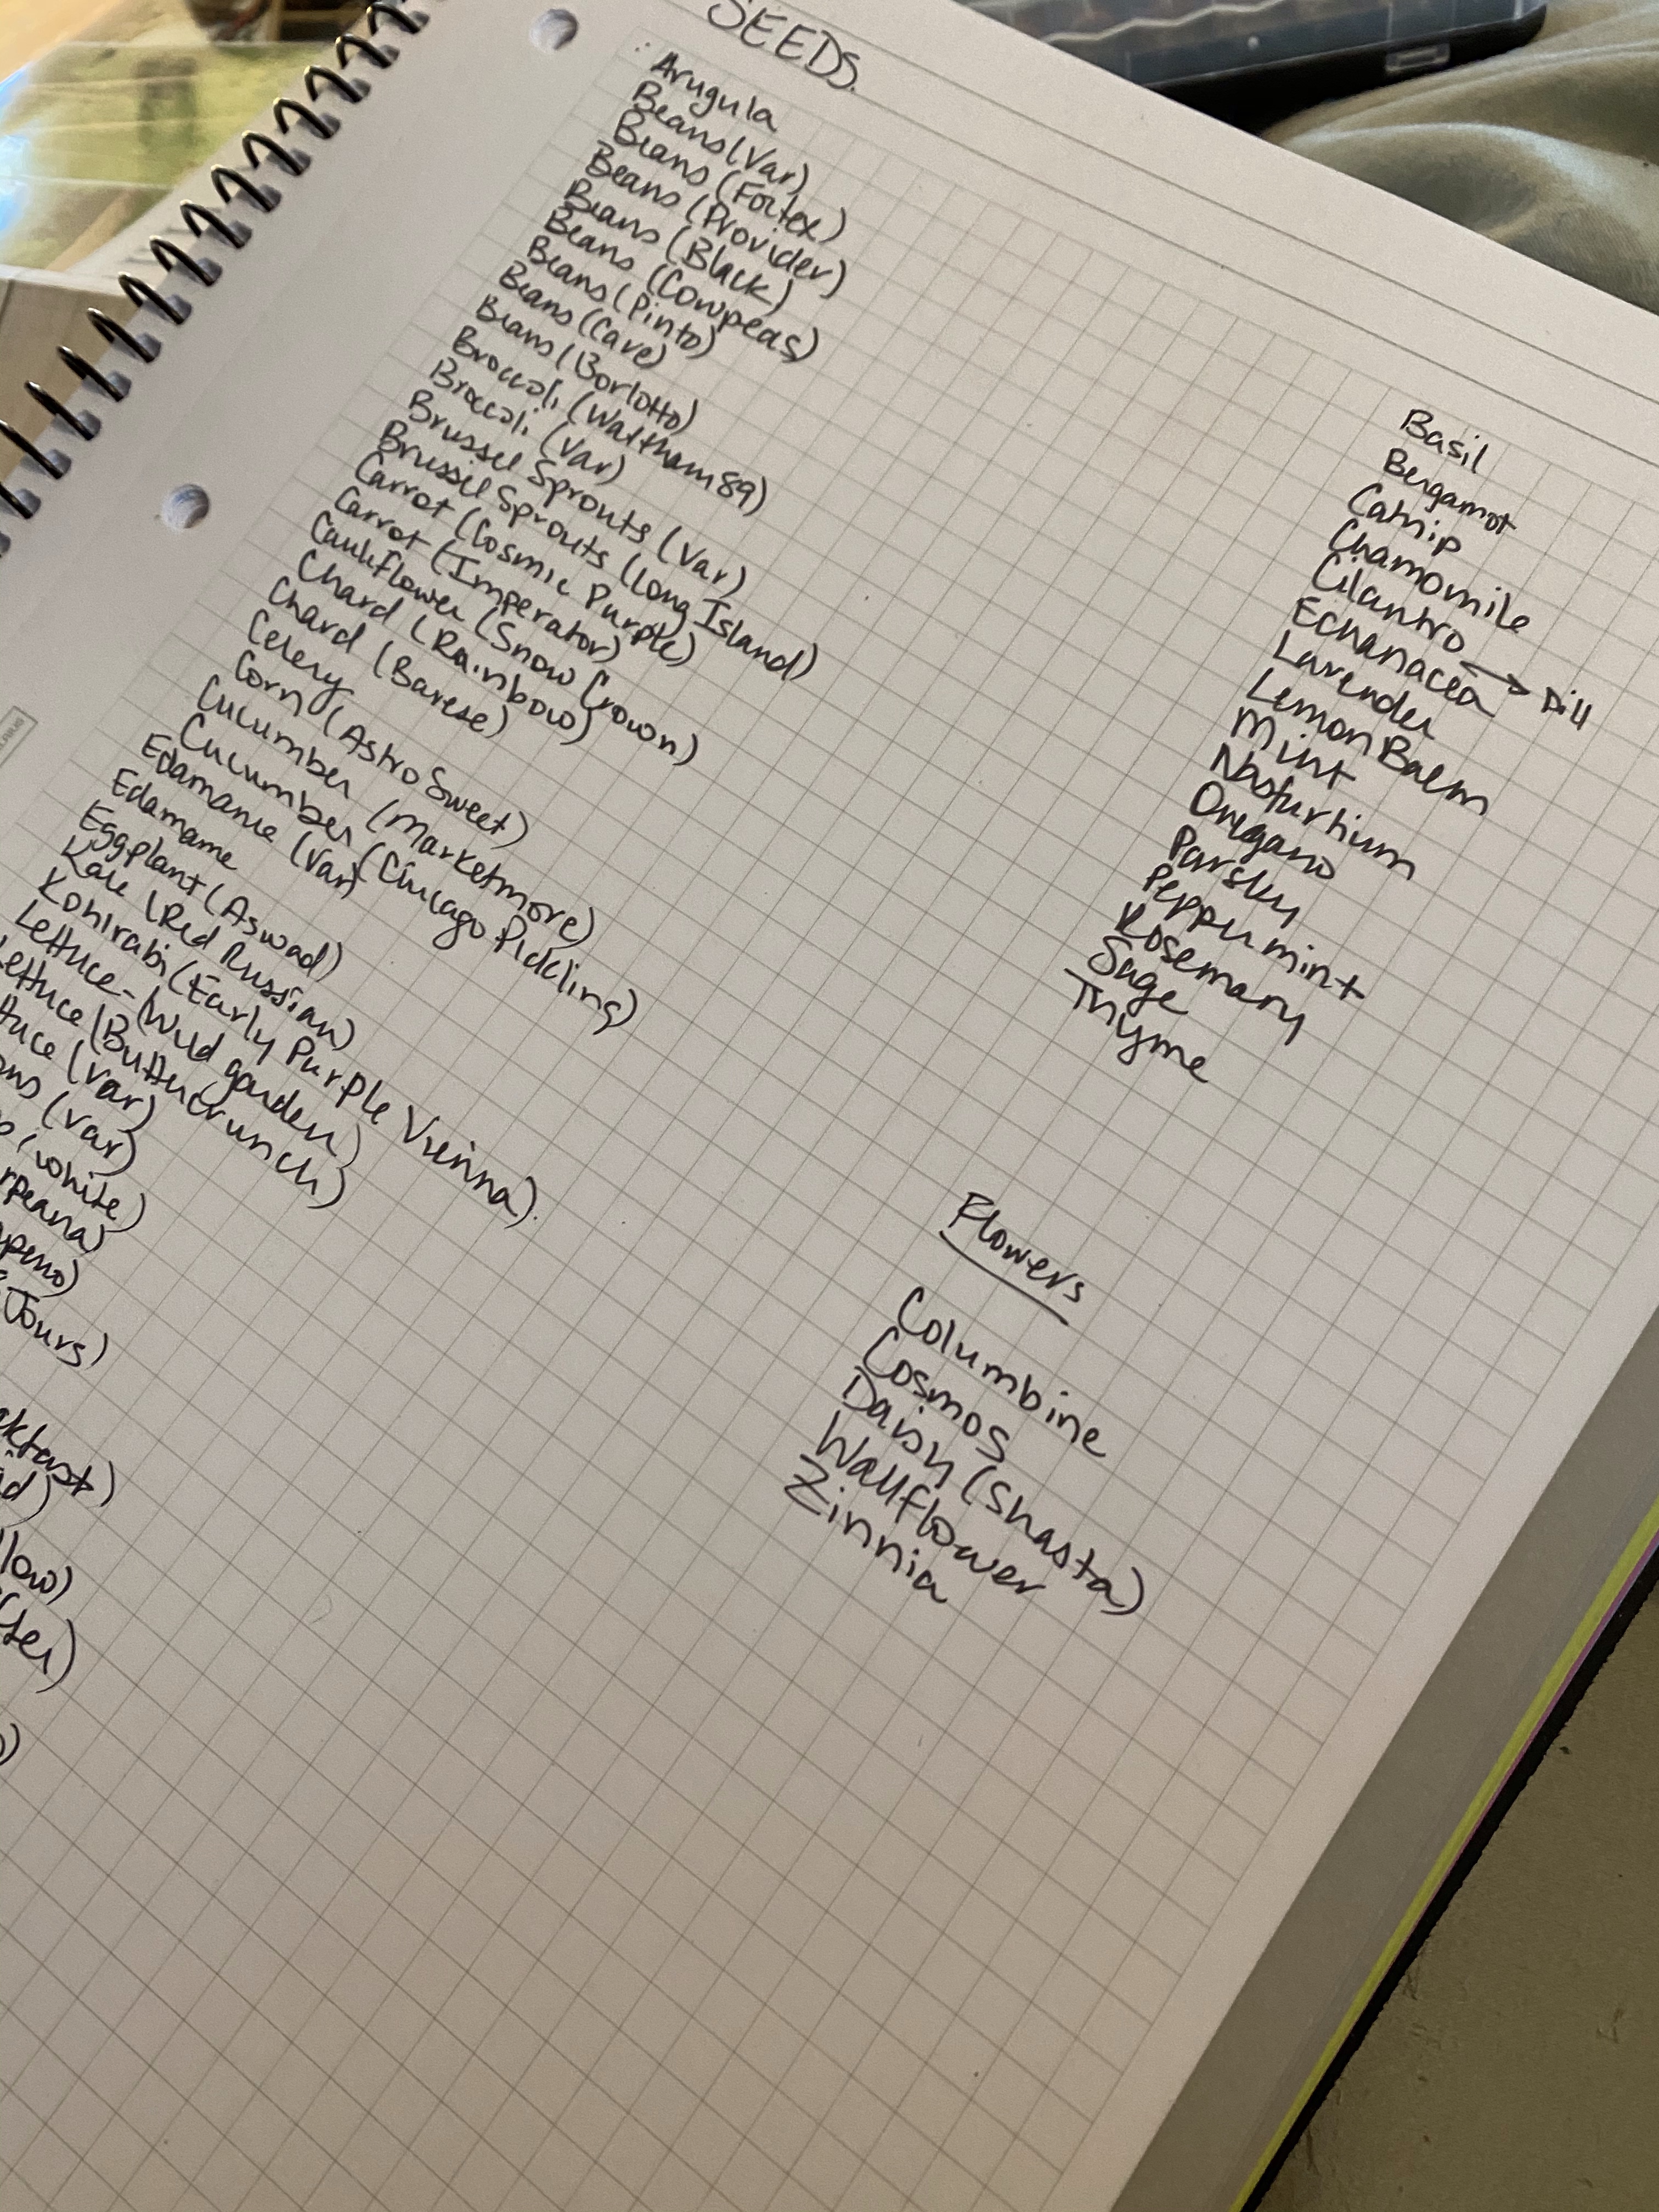 SEEDS.
Arugula
Beans (Var)
Beans (Fortex)
Beans (Provider)
Beans (Black)
Beans (Cowpeas)
Beans (Pinto)
Beans (Care)
Beans (Borlotto)
Broccoli (Waltham 89)
Broccoli (Var)
Brussel Sprouts (Var)
Brussel Sprouts (Long Island)
Carrot (Cosmic Purple)
Carrot (Imperator)
Cauliflower (Snow Crown)
Chard (Rainbow)
Chard (Barese)
Celery
Corn (Astro Sweet)
Cucumber (Marketmore)
Cucumber (Chicago Pickling)
Edamame (Var)
Edamame
Eggplant (Aswad)
Kale (Red Russian)
Kohlrabi (Early Purple Vienna).
Lettuce - (Wild garden)
Lettuce (Buttercrunch)
(Var)
(Var)
(white)
Jours)
Basil
Bergamot
Catnip
Chamomile
Cilantro → Dill
Echanacea
Lavender
Lemon Balm
Mint
Nasturtium
Oregano
Parsley
Peppermint
Rosemary
Sage
Thyme
Flowers
Columbine
Cosmos
Daisy (Shasta)
Wallflower
Zinnia